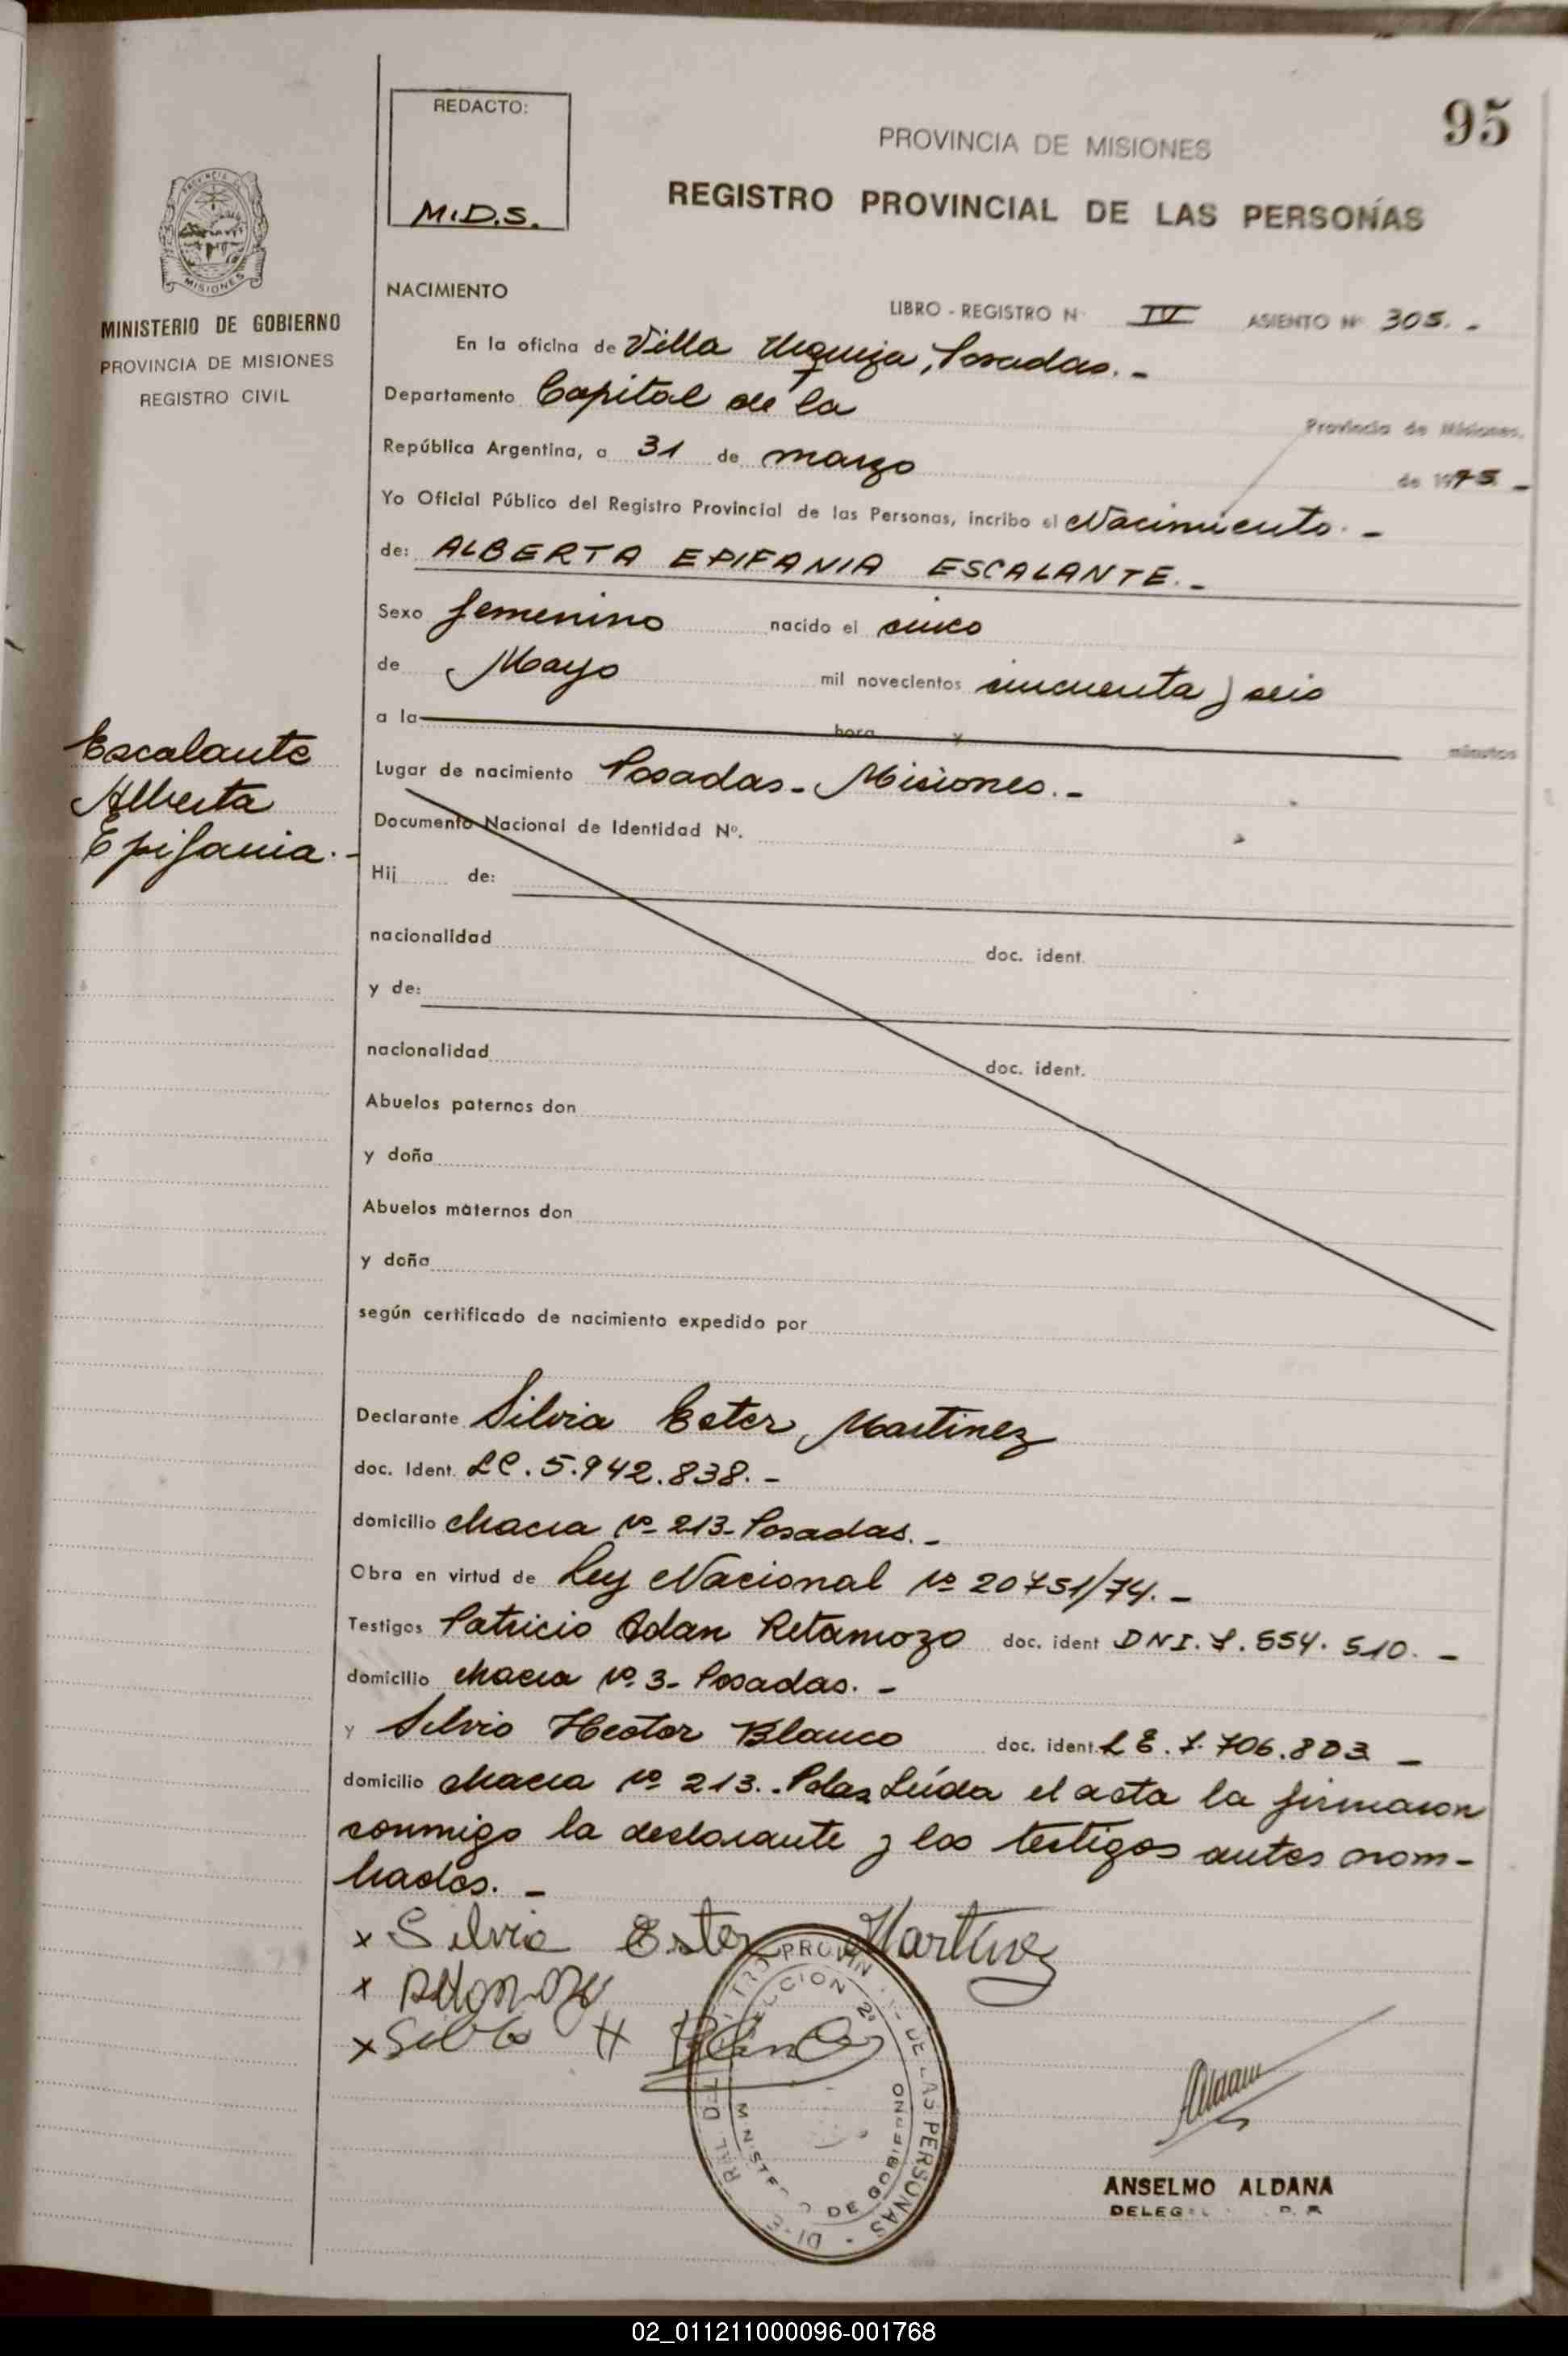 95
REDACTO:
M.D.S.
PROVINCIA DE MISIONES
REGISTRO PROVINCIAL DE LAS PERSONAS
PROVINCIA DE
MISIONES
MINISTERIO DE GOBIERNO
PROVINCIA DE MISIONES
REGISTRO CIVIL
NACIMIENTO
LIBRO - REGISTRO N IV ASIENTO Nº 305. -
En la oficina de Villa Urquiza, Posadas. -
Departamento Capital de la Provincia de Misiones,
República Argentina, a 31 de marzo de 1975. -
Yo Oficial Público del Registro Provincial de las Personas, incribo el Nacimiento. -
de: ALBERTA EPIFANIA ESCALANTE. -
Sexo femenino nacido el cinco
de Mayo mil novecientos cincuenta y seis
a la hora y minutos
Escalante
Alberta
Epifania. -
Lugar de nacimiento Posadas - Misiones. -
Documento Nacional de Identidad Nº.
Hij de:
nacionalidad doc. ident.
y de:
nacionalidad doc. ident.
Abuelos paternos don
y doña
Abuelos maternos don
y doña
según certificado de nacimiento expedido por
Declarante Silvia Ester Martinez
doc. Ident. LC. 5.942.838. -
domicilio chacra nº 213 - Posadas. -
Obra en virtud de Ley Nacional nº 20751/74. -
Testigos Patricio Adan Retamozo doc. ident DNI. 554. 510. -
domicilio chacra nº 3 - Posadas. -
y Silvio Hector Blanco doc. ident. LE. 7.706.803 -
domicilio chacra nº 213. - Pdas Leída el acta la firmaron
conmigo la declarante y los testigos antes nom-
brados. -
x Silvia Ester Martinez
x
x Silvio H Blanco
DE LAS PERSONAS
MINISTERIO DE GOBIERNO
ANSELMO ALDANA
02_011211000096-001768